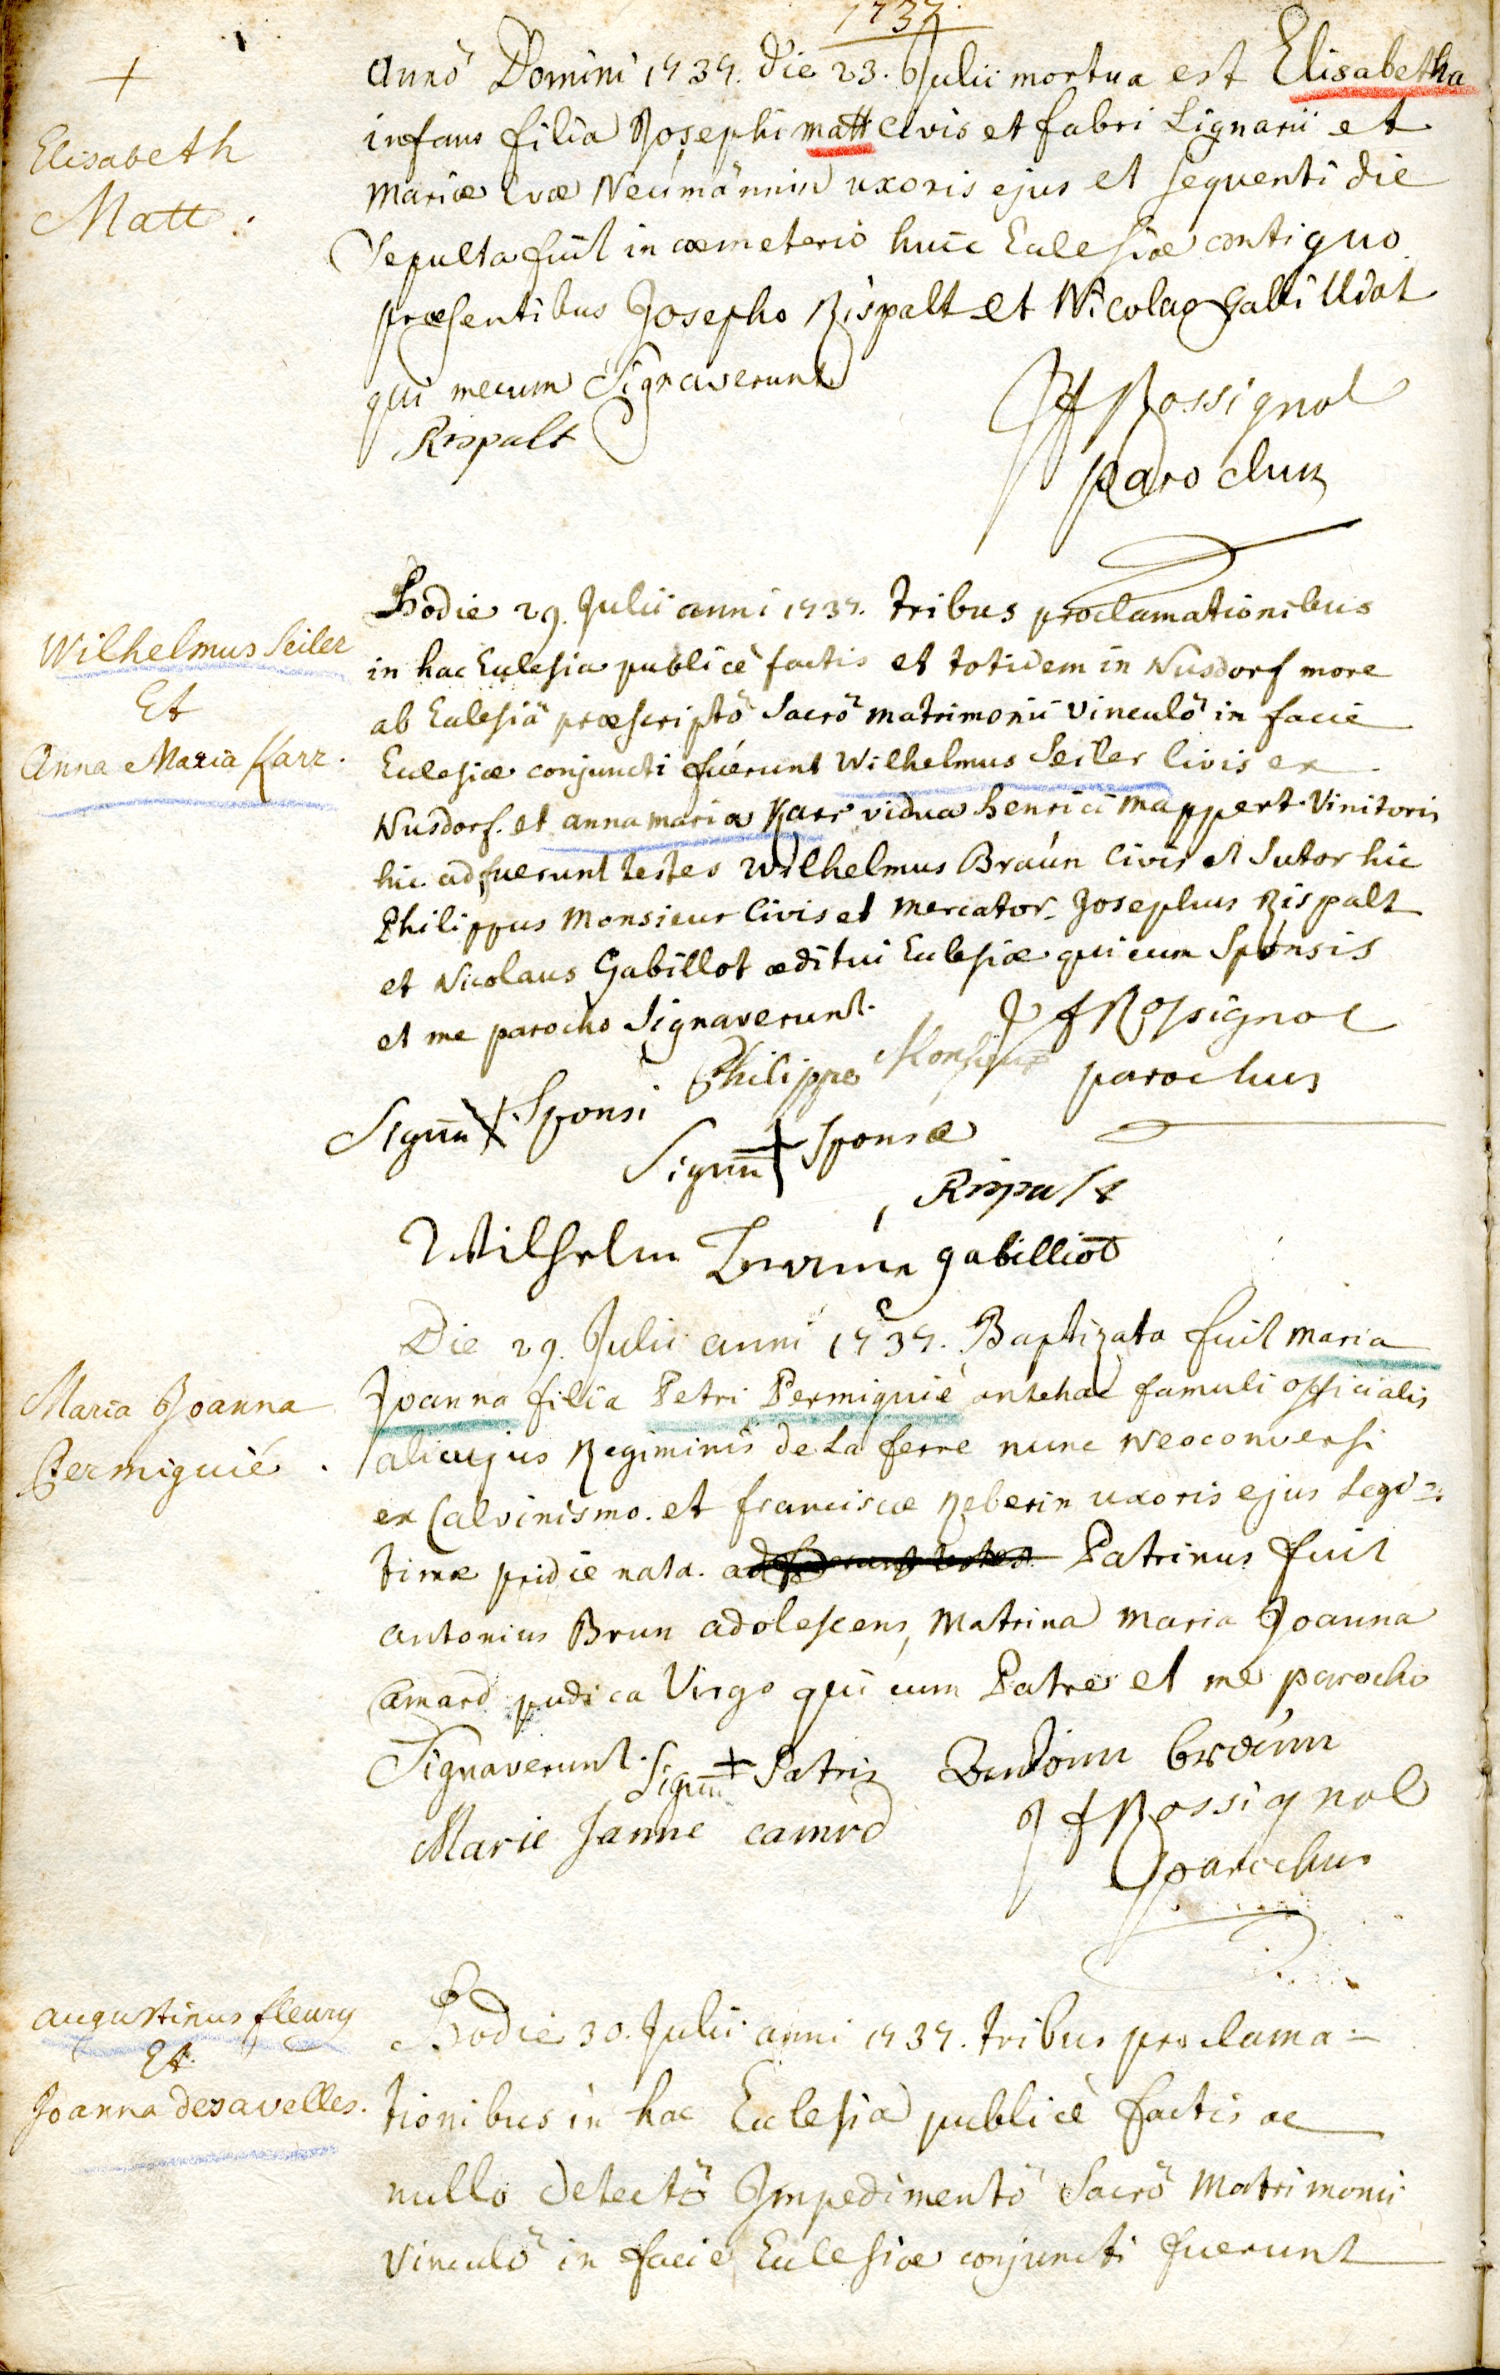 1737.
+
Elisabeth
Matt.
Annō Domini 1737. die 23. Julii mortua est Elisabetha
infans filia Josephi Matt Civis et fabri Lignarii et
Mariæ Evæ Neümännin uxoris ejus et sequenti die
Sepulta fuit in cœmeterio huic Eclesiæ contiguo
præsentibus Josepho Rispalt et Nicolao Gabilliot
qui mecum Signaverunt
Rispalt
JfRossignol
parochus
Wilhelmus Seiler
Et
Anna Maria Karr.
Hodie 29. Julii anni 1737. tribus proclamationibus
in hac Eclesia publicè factis et totidem in Nusdorf more
ab Eclesiâ præscriptō Sacrō matrimonii Vinculō in facie
Eclesiæ conjuncti fuerunt Wilhelmus Seiler Civis ex
Nusdorf. et anna maria Karr vidua henrici Mappert Vinitoris
hic. adfuerunt testes Wilhelmus Braún Civis et Sutor hic
Philippus Monsieur Civis et Mercator. Josephus Rispalt
et Nicolaus Gabillot æditui Eclesiæ qui cum Sponsis
et me parocho Signaverunt.
JfRossignol
parochus
Philippe Monsieur
Signū + Sponsi
Signū + Sponsæ
Rispalt
Wilhelm Braun gabilliot
Maria Joanna
Permiguié.
Die 29. Julii anni 1737. Baptizata fuit maria
Joanna filia Petri Permiguié antehac famuli officialis
alicujus Regiminis de La ferre nunc Neoconversi
ex Calvinismo. et franciscæ Reberin uxoris ejus Legi=
timæ pridie nata. adfuerunt testes Patrinus fuit
Antonius Brun adolescens, Matrina Maria Joanna
Camard pudica Virgo qui cum Patre et me parocho
Signaverunt. Signū + Patris
Antoni braun
Marie Janne camrd
JfRossignol
parochus
Augustinus fleury
Et
Joanna desavelles.
Hodie 30. Julii anni 1737. tribus proclama=
tionibus in hac Eclesiâ publicè factis ac
nullo detectō Impedimentō Sacrō Matrimonii
Vinculō in facie Eclesiæ conjuncti fuerunt